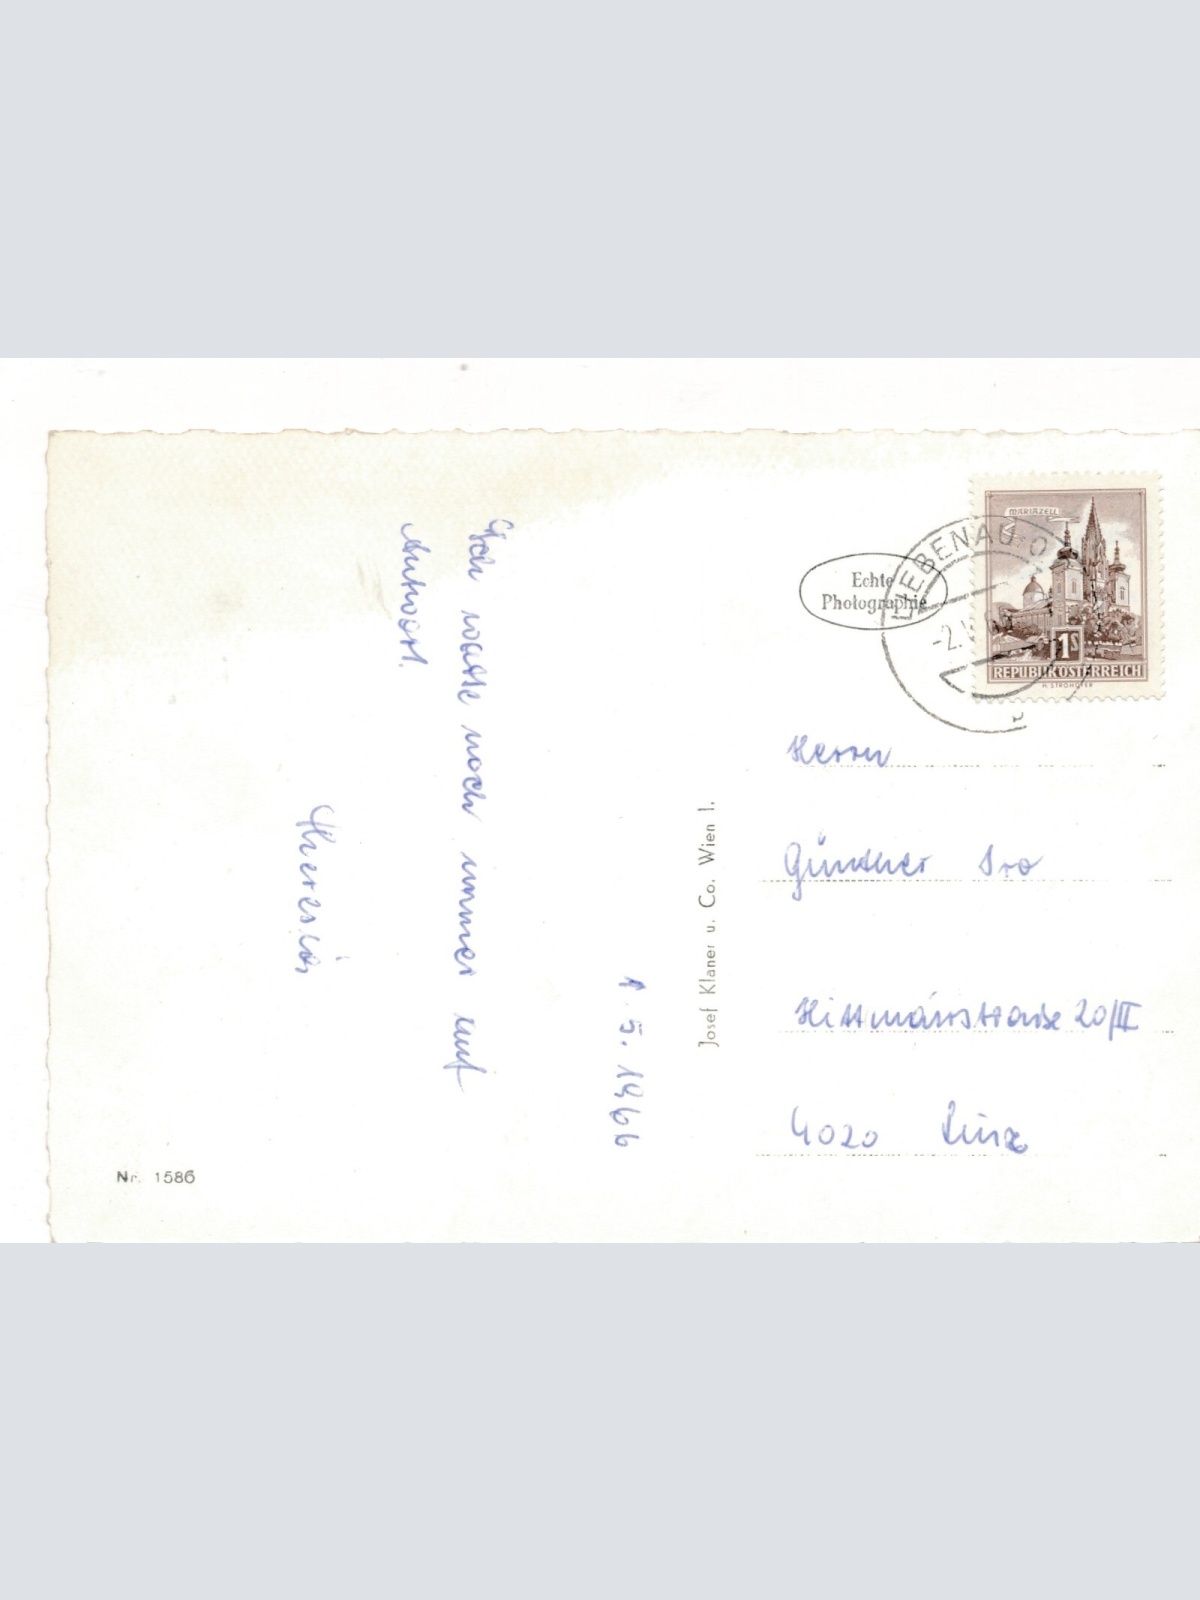 1. 5. 1966
Ich warte noch immer auf
Antwort.
Theresia
Nr. 1586
Josef Klaner u. Co. Wien I.
Echte
Photographie
LIEBENAU, O
-2.
MARIAZELL
1S
REPUBLIK ÖSTERREICH
H. STROHOFER
Herrn
Günther Iro
20/II
4020 Linz